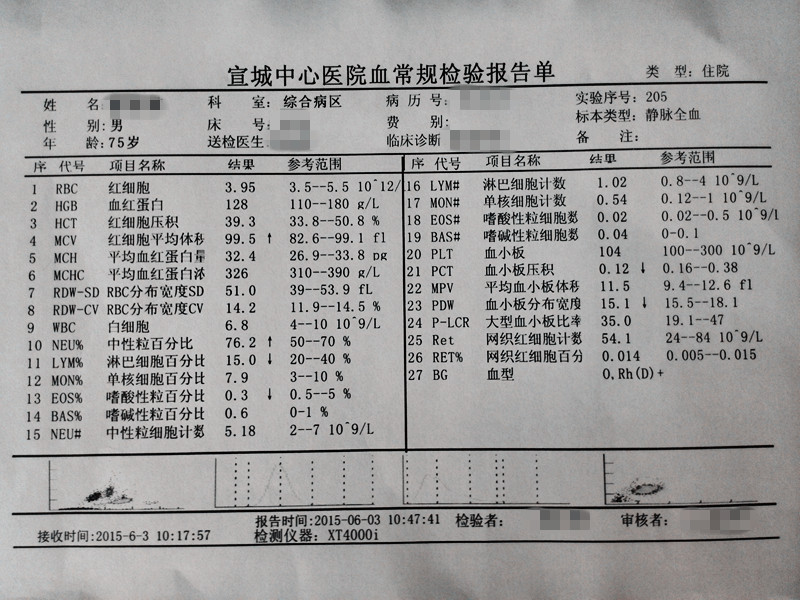 宣城中心医院血常规检验报告单
类 型: 住院
姓 名
科 室: 综合病区
病 历 号:
实验序号: 205
性 别: 男
床 号:
费 别:
标本类型: 静脉全血
年 龄: 75岁
送检医生
临床诊断
备 注:
序 代号 项目名称 结果 参考范围
1 RBC 红细胞 3.95 3.5--5.5 10^12/
2 HGB 血红蛋白 128 110--180 g/L
3 HCT 红细胞压积 39.3 33.8--50.8 %
4 MCV 红细胞平均体积 99.5 ↑ 82.6--99.1 fl
5 MCH 平均血红蛋白量 32.4 26.9--33.8 pg
6 MCHC 平均血红蛋白浓 326 310--390 g/L
7 RDW-SD RBC分布宽度SD 51.0 39--53.9 fL
8 RDW-CV RBC分布宽度CV 14.2 11.9--14.5 %
9 WBC 白细胞 6.8 4--10 10^9/L
10 NEU% 中性粒百分比 76.2 ↑ 50--70 %
11 LYM% 淋巴细胞百分比 15.0 ↓ 20--40 %
12 MON% 单核细胞百分比 7.9 3--10 %
13 EOS% 嗜酸性粒百分比 0.3 ↓ 0.5--5 %
14 BAS% 嗜碱性粒百分比 0.6 0-1 %
15 NEU# 中性粒细胞计数 5.18 2--7 10^9/L
序 代号 项目名称 结果 参考范围
16 LYM# 淋巴细胞计数 1.02 0.8--4 10^9/L
17 MON# 单核细胞计数 0.54 0.12--1 10^9/L
18 EOS# 嗜酸性粒细胞数 0.02 0.02--0.5 10^9/L
19 BAS# 嗜碱性粒细胞数 0.04 0-0.1
20 PLT 血小板 104 100--300 10^9/L
21 PCT 血小板压积 0.12 ↓ 0.16--0.38
22 MPV 平均血小板体积 11.5 9.4--12.6 fl
23 PDW 血小板分布宽度 15.1 ↓ 15.5--18.1
24 P-LCR 大型血小板比率 35.0 19.1--47
25 Ret 网织红细胞计数 54.1 24--84 10^9/L
26 RET% 网织红细胞百分 0.014 0.005--0.015
27 BG 血型 O,Rh(D)+
报告时间:2015-06-03 10:47:41 检验者: 审核者:
接收时间:2015-6-3 10:17:57 检测仪器: XT4000i